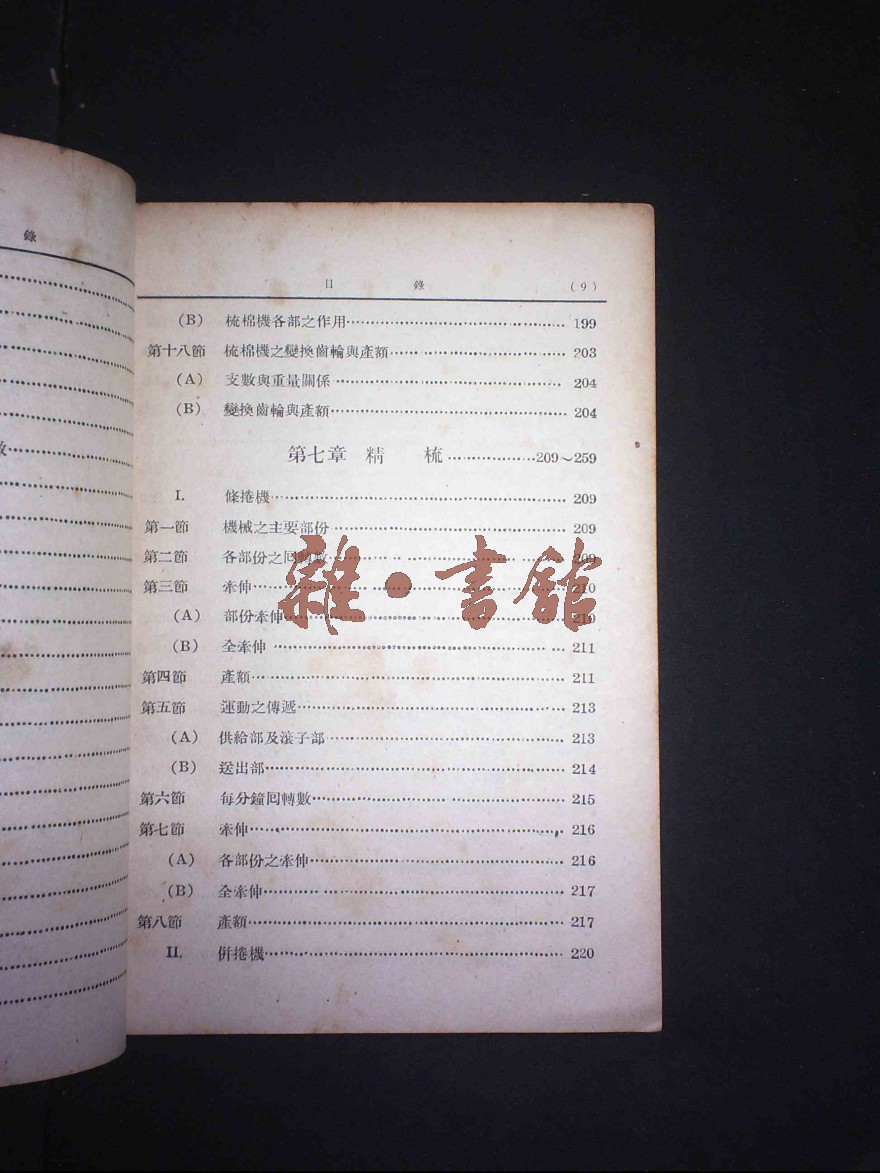 錄
目 錄 (9)
(B) 梳棉機各部之作用 199
第十八節 梳棉機之變換齒輪與產額 203
(A) 支數與重量關係 204
(B) 變換齒輪與產額 204
第七章 精 梳 209～259
I. 條捲機 209
第一節 機械之主要部份 209
第二節 各部份之囘轉數 209
第三節 牽伸 210
(A) 部份牽伸 210
(B) 全牽伸 211
第四節 產額 211
第五節 運動之傳遞 213
(A) 供給部及滾子部 213
(B) 送出部 214
第六節 每分鐘囘轉數 215
第七節 牽伸 216
(A) 各部份之牽伸 216
(B) 全牽伸 217
第八節 產額 217
II. 併捲機 220
雜·書館